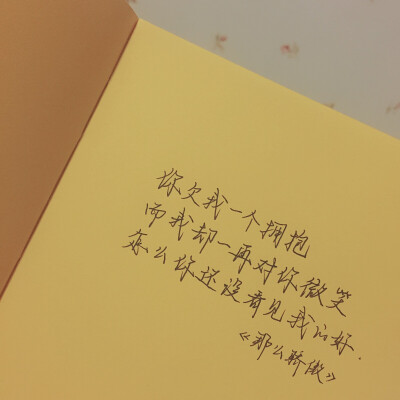 你欠我一个拥抱
而我却一再对你微笑
怎么你还没看见我的好.
《那么骄傲》